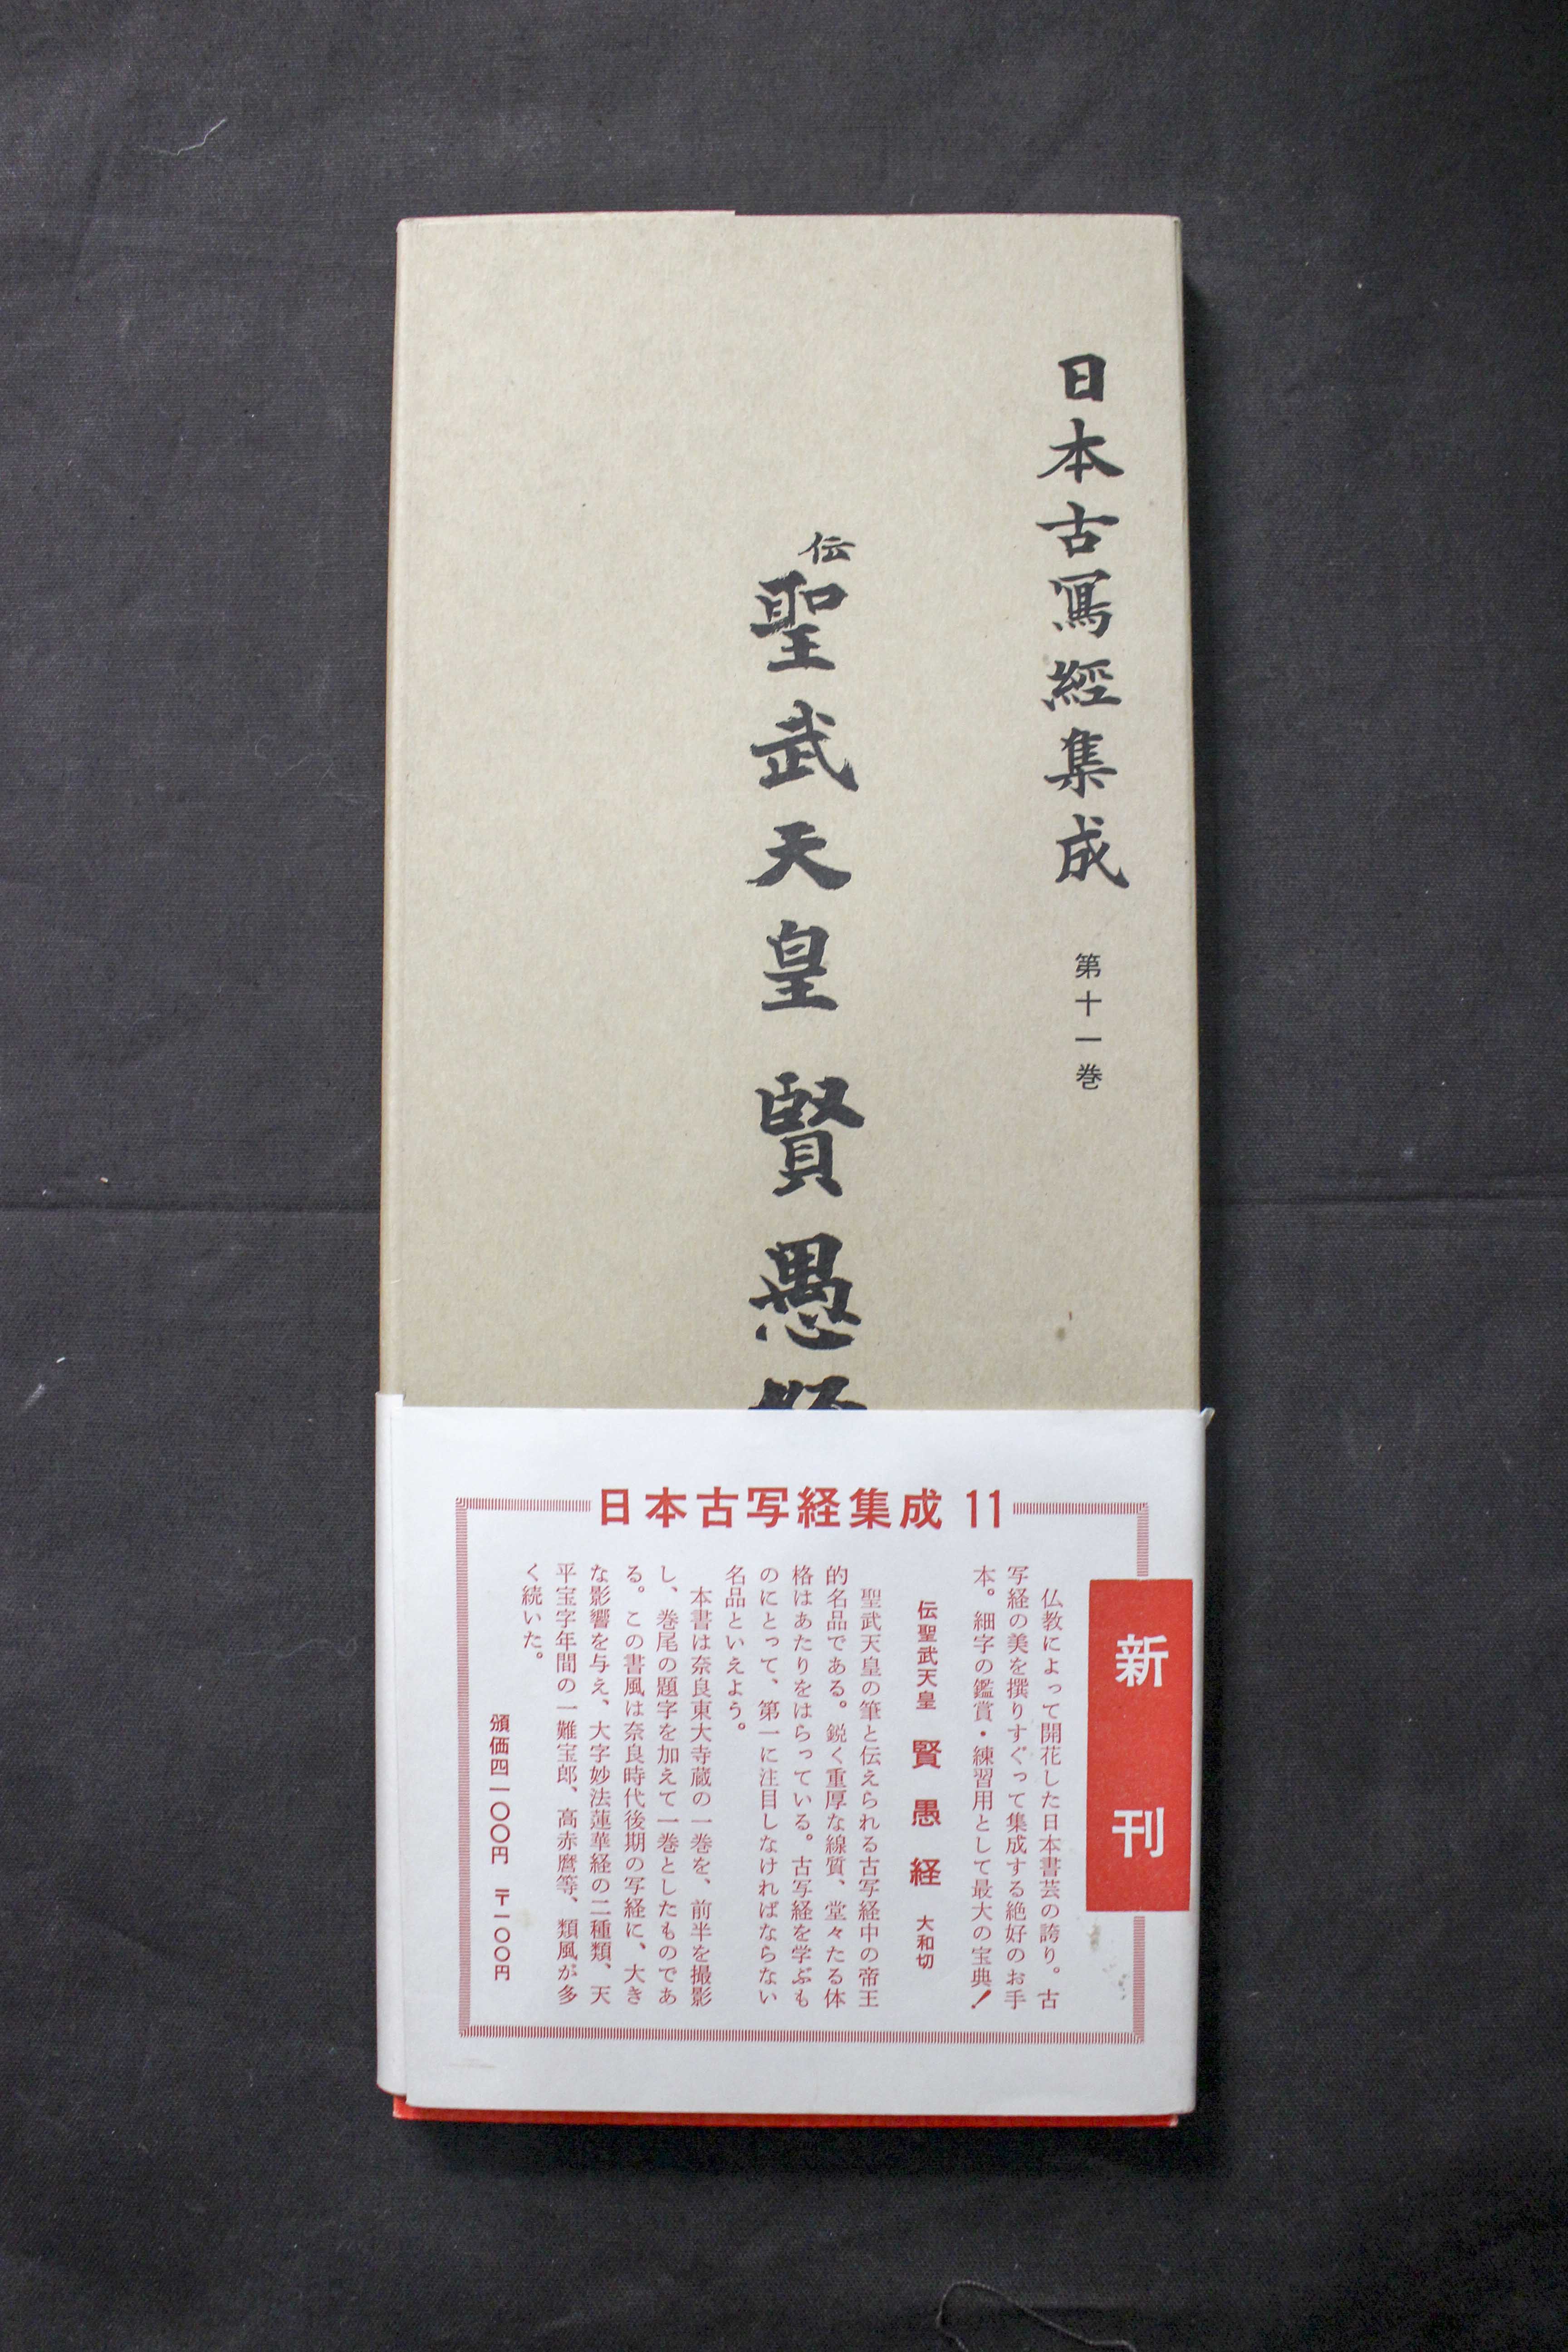 日本古寫經集成
第十一巻
伝
聖武天皇 賢愚
日本古写経集成 11
新刊
仏教によって開花した日本書芸の誇り。古
写経の美を撰りすぐって集成する絶好のお手
本。細字の鑑賞・練習用として最大の宝典！
伝聖武天皇 賢愚経 大和切
聖武天皇の筆と伝えられる古写経中の帝王
的名品である。鋭く重厚な線質、堂々たる体
格はあたりをはらっている。古写経を学ぶも
のにとって、第一に注目しなければならない
名品といえよう。
本書は奈良東大寺蔵の一巻を、前半を撮影
し、巻尾の題字を加えて一巻としたものであ
る。この書風は奈良時代後期の写経に、大き
な影響を与え、大字妙法蓮華経の二種類、天
平宝字年間の一難宝郎、高赤麿等、類風が多
く続いた。
頒価四一〇〇円 〒一〇〇円